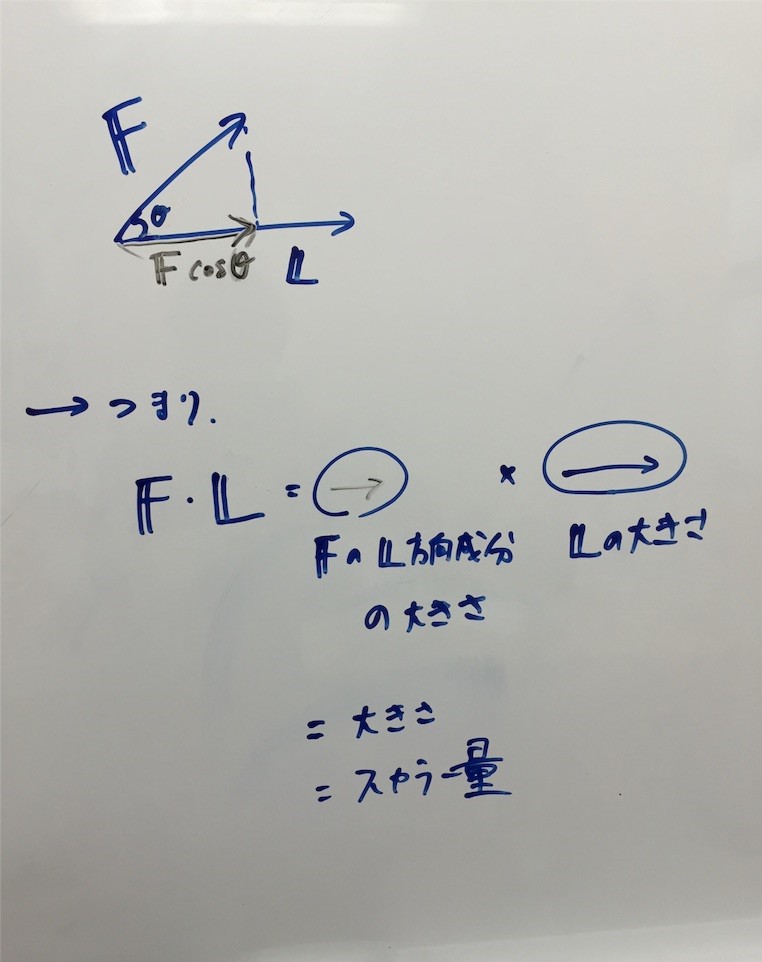 𝔽
θ
𝔽 cosθ 𝕃
→ つまり.
𝔽・𝕃 = → × →
𝔽の𝕃方向成分 𝕃の大きさ
の大きさ
= 大きさ
= スカラー量